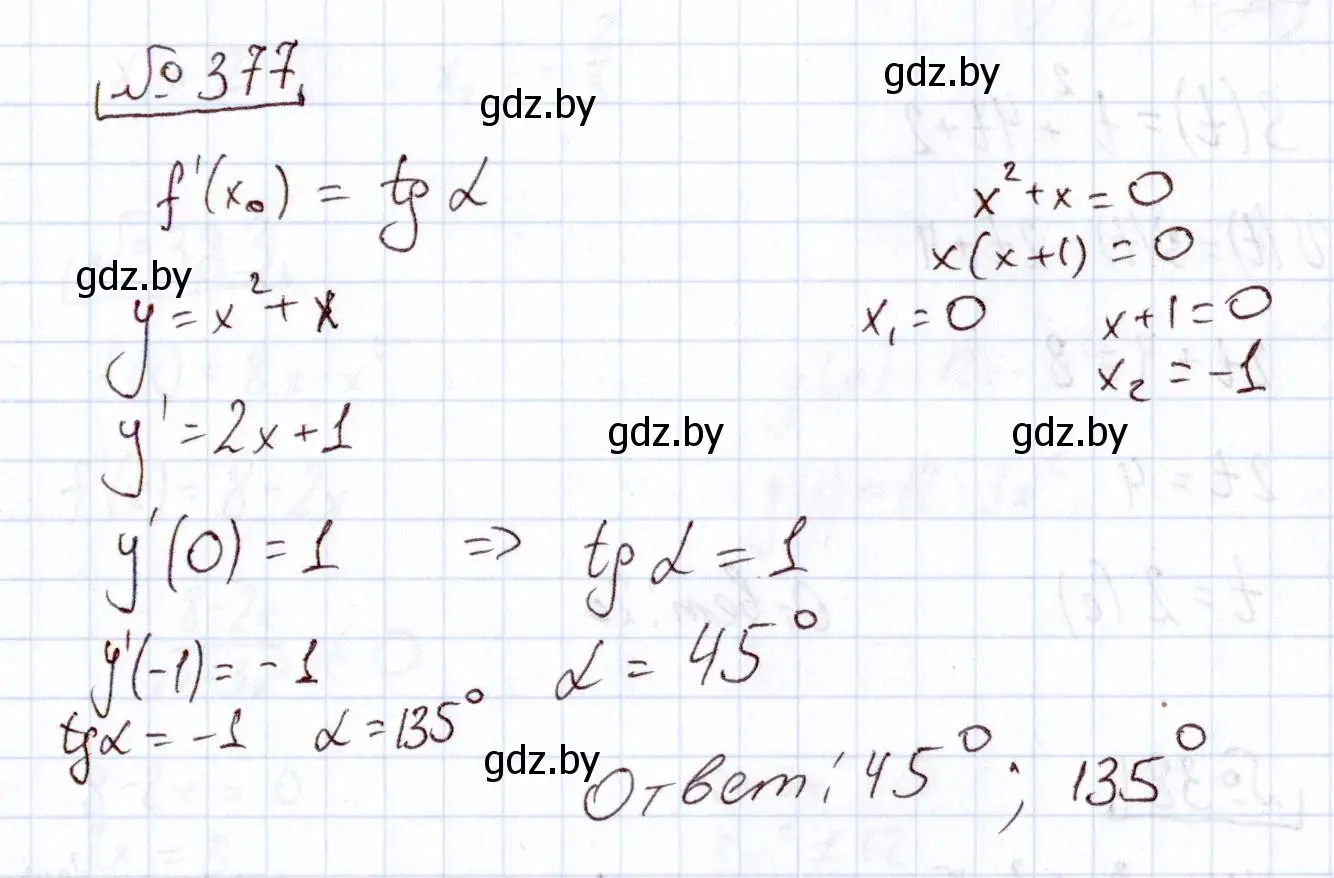 № 377
gdz.by
gdz.by
f'(x₀) = tg α
x² + x = 0
x(x+1) = 0
gdz.by
y = x² + x
x₁ = 0 x+1 = 0
x₂ = -1
y' = 2x+1
gdz.by
gdz.by
y'(0) = 1 => tg α = 1
y'(-1) = -1 α = 45°
tg α = -1 α = 135°
gdz.by
Ответ: 45°; 135°